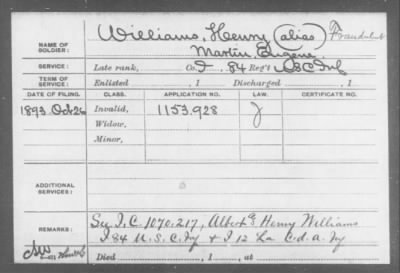 Williams, Henry (alias) Fraudulent
NAME OF SOLDIER: Martin, Eugene
SERVICE: Late rank, Co. I, 84 Reg't U S C Inf
TERM OF SERVICE: Enlisted , 1 Discharged , 1
DATE OF FILING. CLASS. APPLICATION NO. LAW. CERTIFICATE NO.
1893 Oct 26 Invalid, 1153.928 J
Widow,
Minor,
ADDITIONAL SERVICES:
REMARKS: See I.C. 1070.217, Albert G Henry Williams
I 84 U.S.C. Inf + I 12 La C.d.A. Inf
Died , 1 , at